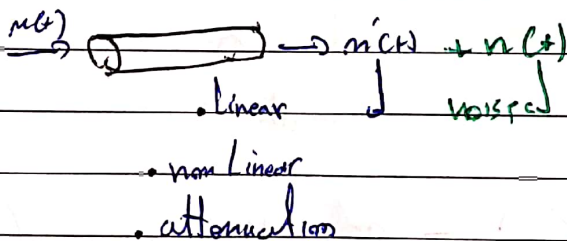 m(t) → m'(t) + n(t)
. Linear
. non Linear
. attenuation